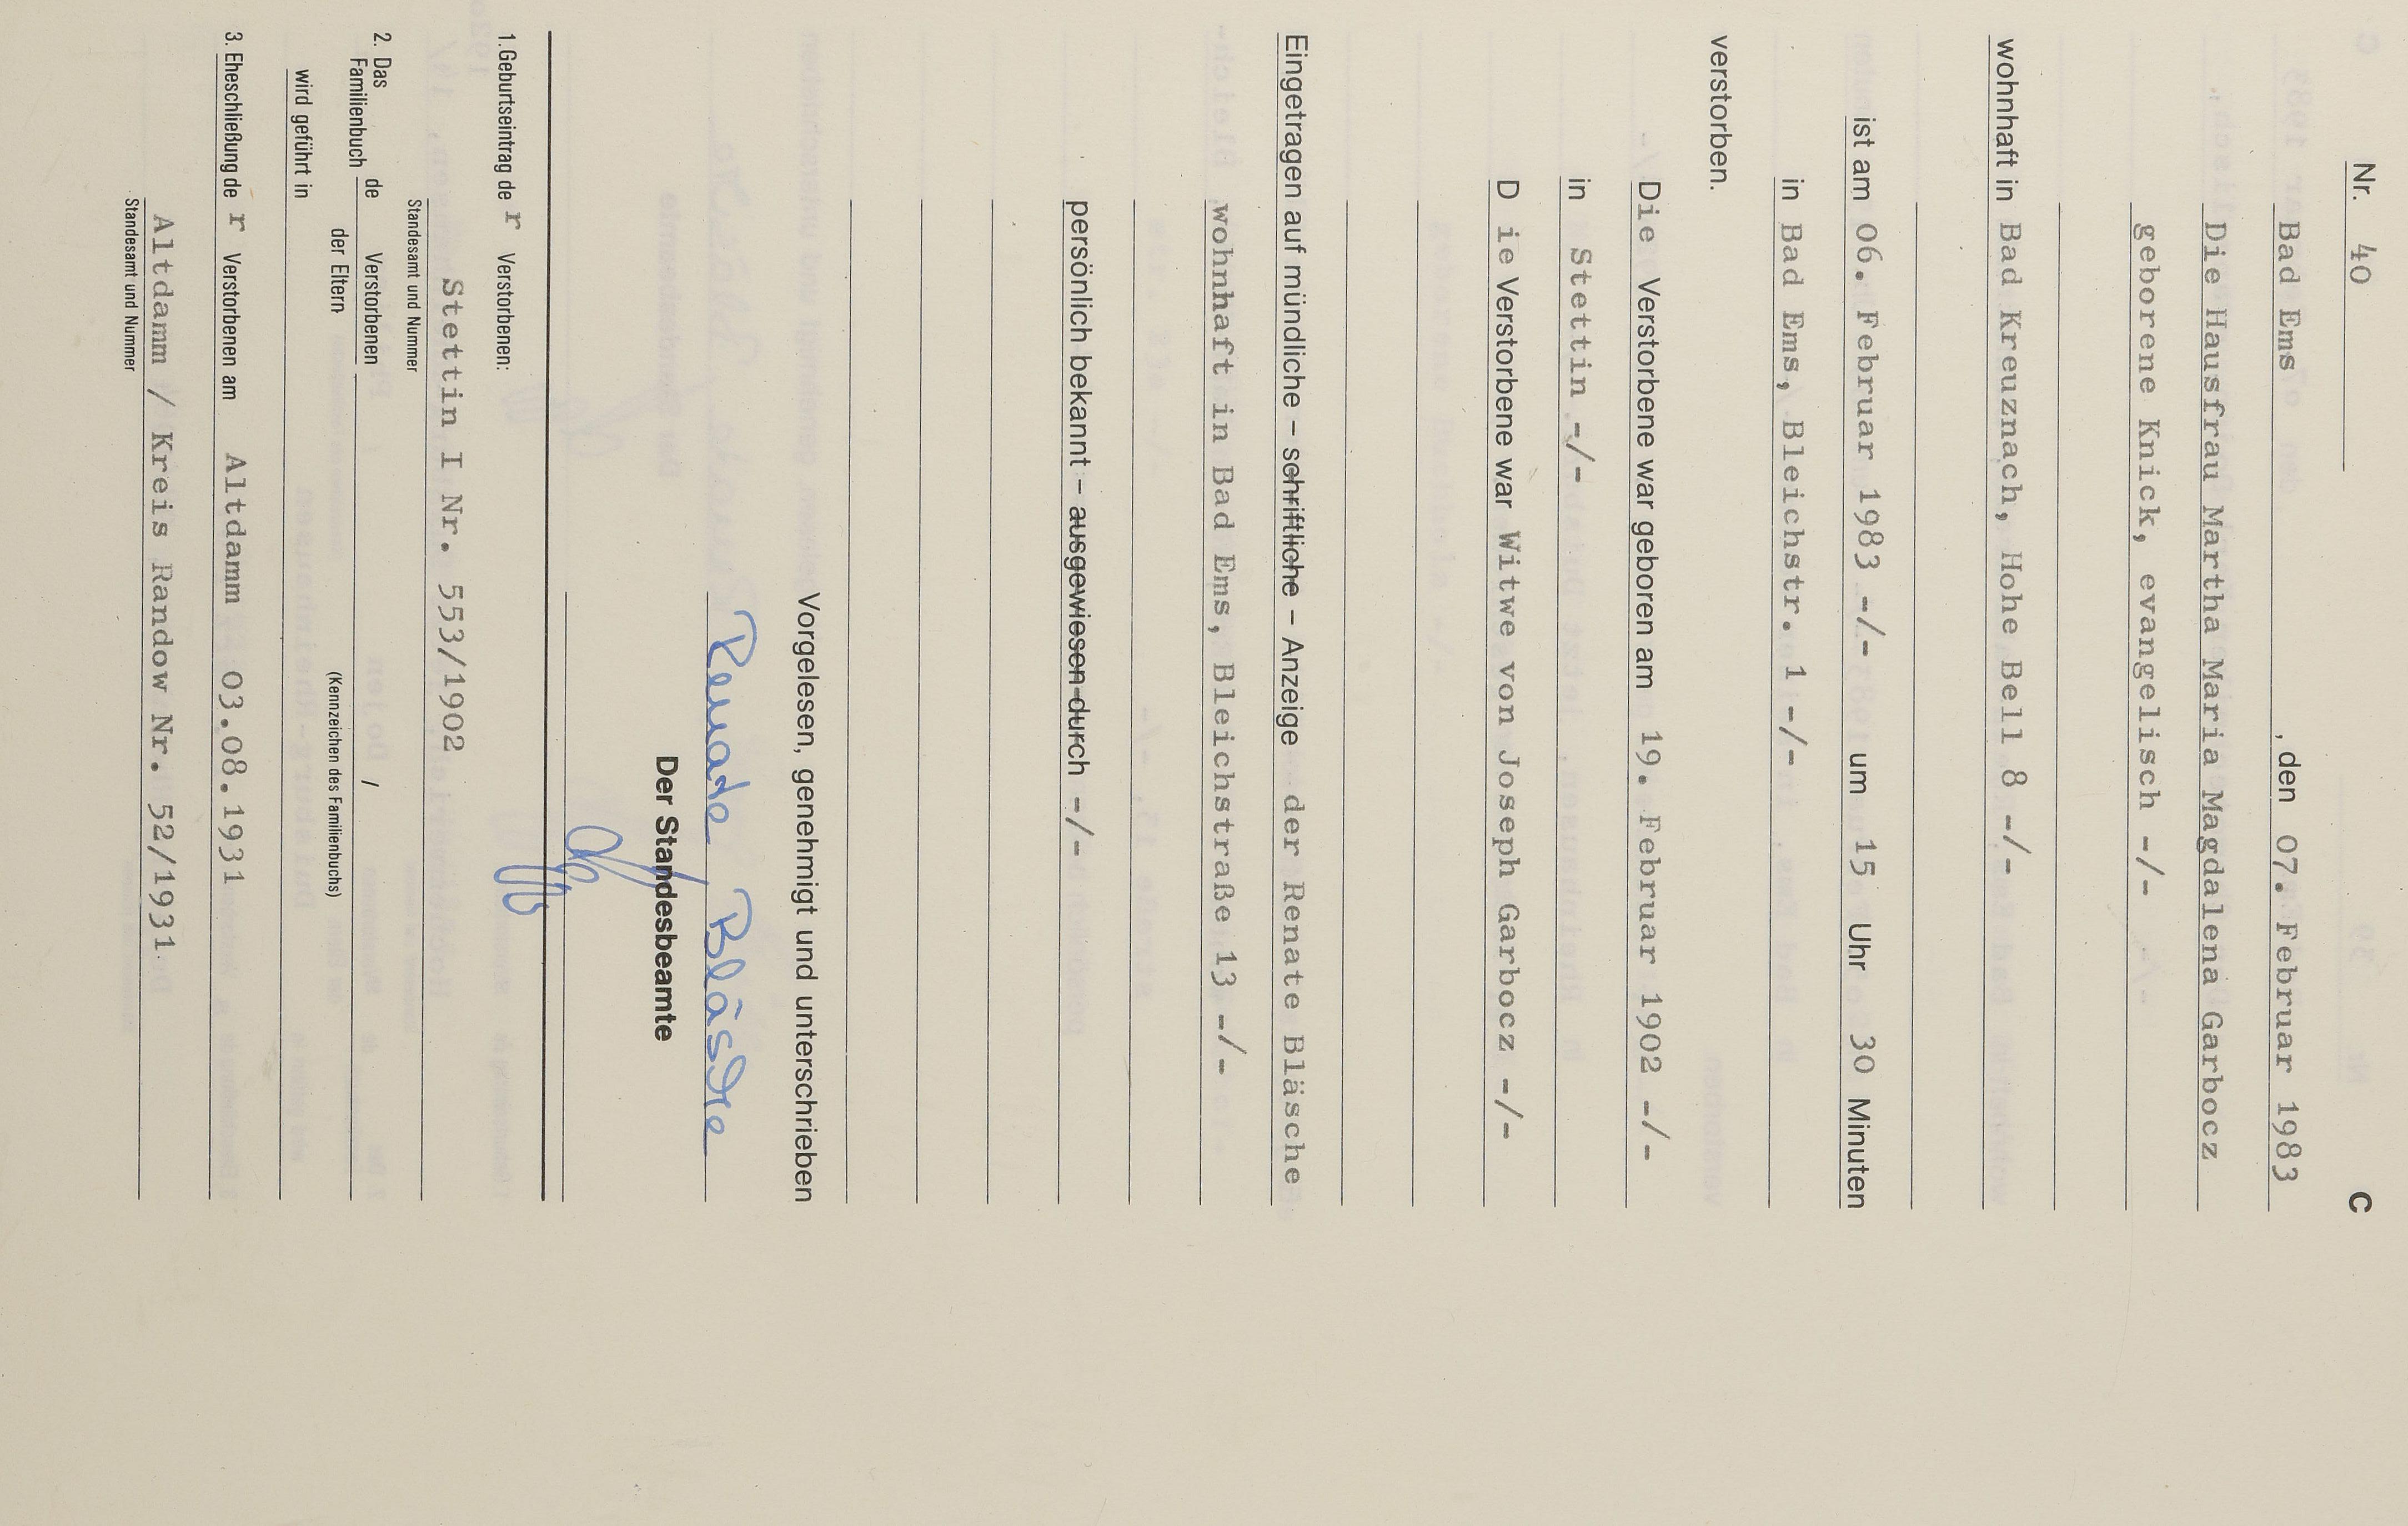 Nr. 40 C
Bad Ems , den 07. Februar 1983
Die Hausfrau Martha Maria Magdalena Garbocz
geborene Knick, evangelisch -/-
wohnhaft in Bad Kreuznach, Hohe Bell 8 -/-
ist am 06. Februar 1983 -/- um 15 Uhr 30 Minuten
in Bad Ems, Bleichstr. 1 -/-
verstorben.
Die Verstorbene war geboren am 19. Februar 1902 -/-
in Stettin -/-
D ie Verstorbene war Witwe von Joseph Garbocz -/-
Eingetragen auf mündliche – schriftliche – Anzeige der Renate Bläsche
wohnhaft in Bad Ems, Bleichstraße 13 -/-
persönlich bekannt – ausgewiesen durch -/-
Vorgelesen, genehmigt und unterschrieben
Renate Bläsche
Der Standesbeamte
1. Geburtseintrag de r Verstorbenen:
Stettin I Nr. 553/1902
Standesamt und Nummer
2. Das Familienbuch de Verstorbenen /
der Eltern (Kennzeichen des Familienbuchs)
wird geführt in
3. Eheschließung de r Verstorbenen am Altdamm 03.08.1931
Altdamm / Kreis Randow Nr. 52/1931
Standesamt und Nummer